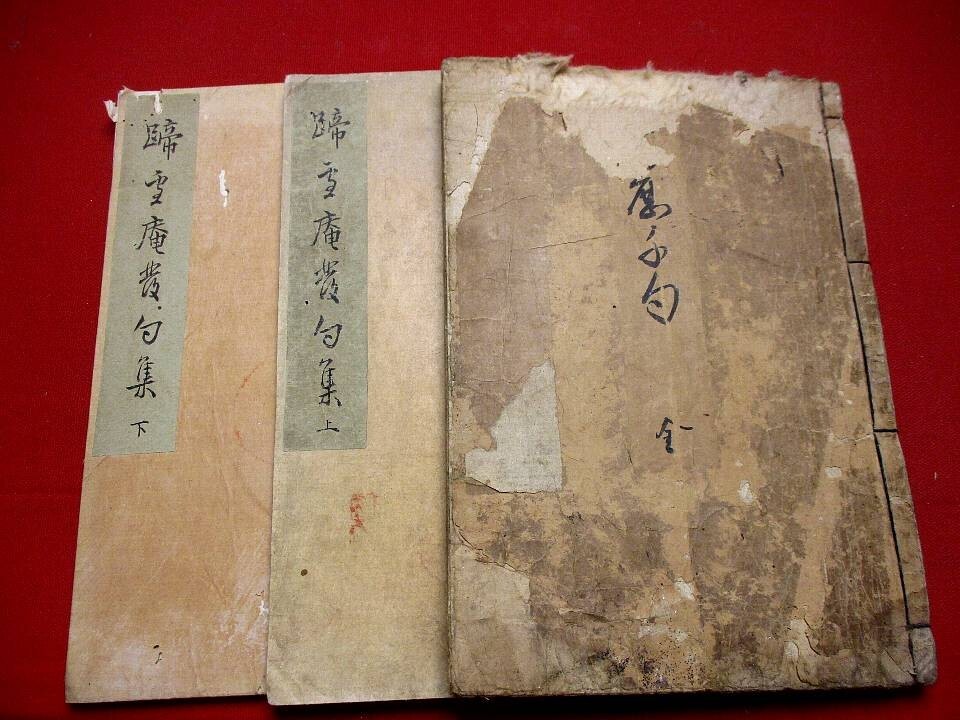 千句
全
蹄雪庵發句集
上
蹄雪庵發句集
下